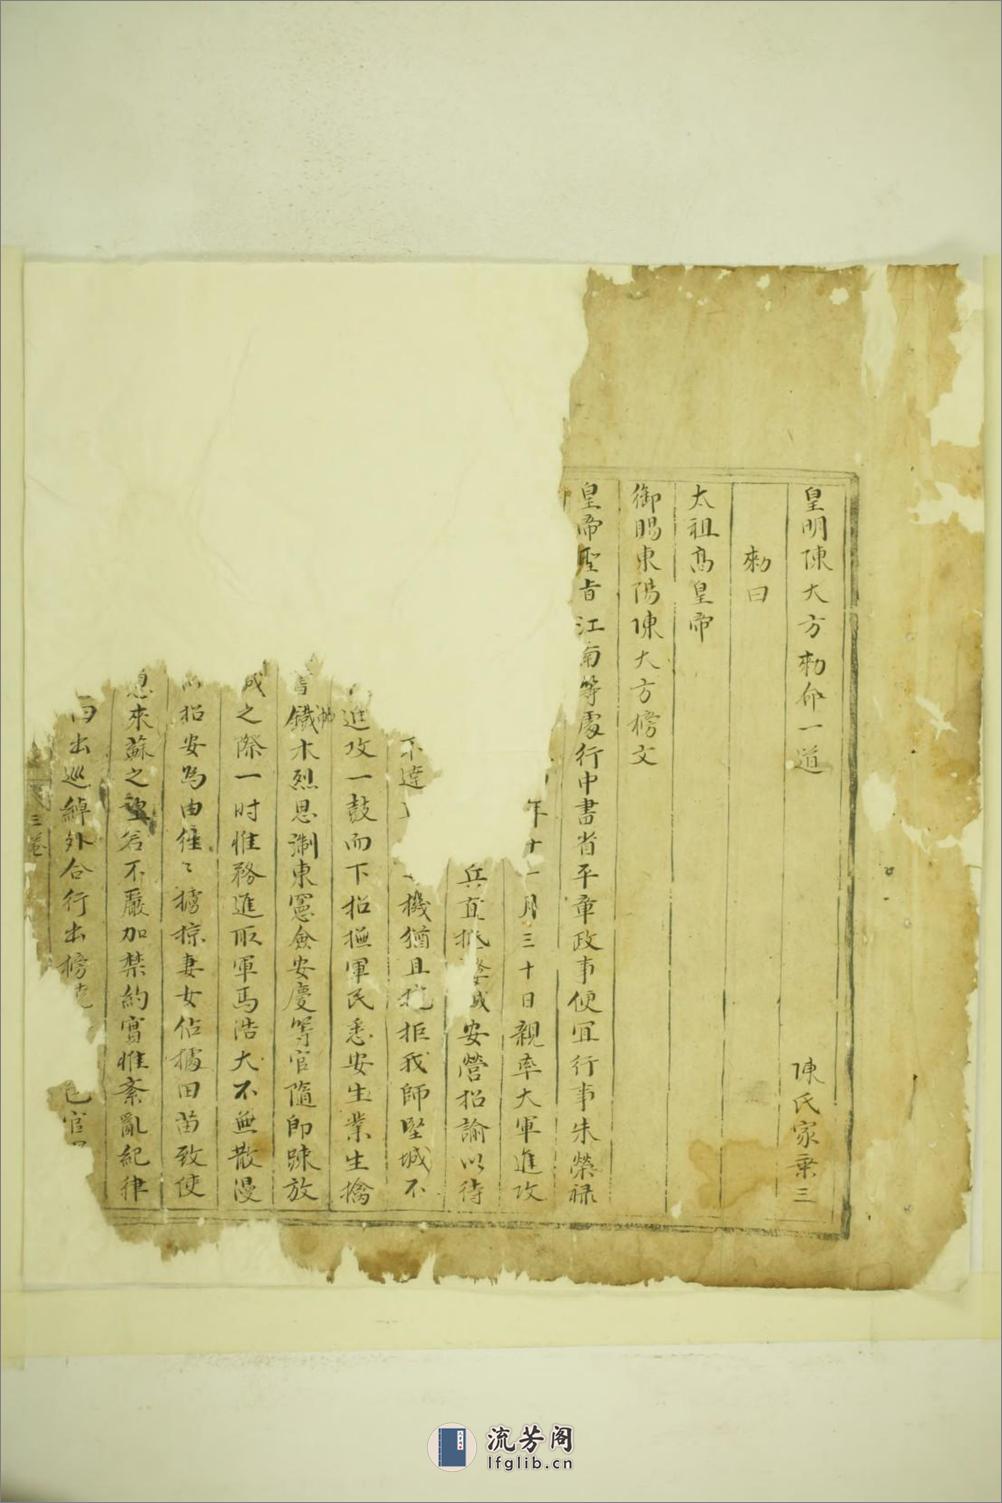 皇明陳大方勅命一道 陳氏家乗三
勅曰
太祖高皇帝
御賜東陽陳大方榜文
皇帝聖旨江南等處行中書省平章政事便宜行事朱榮禄
年十一月三十日親率大軍進攻
兵直抵 城安營招諭以待
不達 機猶且抗拒我師堅城不
進攻一鼓而下招撫軍民悉安生業生擒
帖
鐵木烈思浙東憲僉安慶等官隨即踈放
城之際一时惟務進取軍馬浩大不無散漫
招安為由徃〻擄掠妻女佔據田苗致使
來蘇之望若不嚴加禁約實惟紊亂紀律
出巡綽外合行出榜 色官
三卷
流芳阁
lfglib.cn